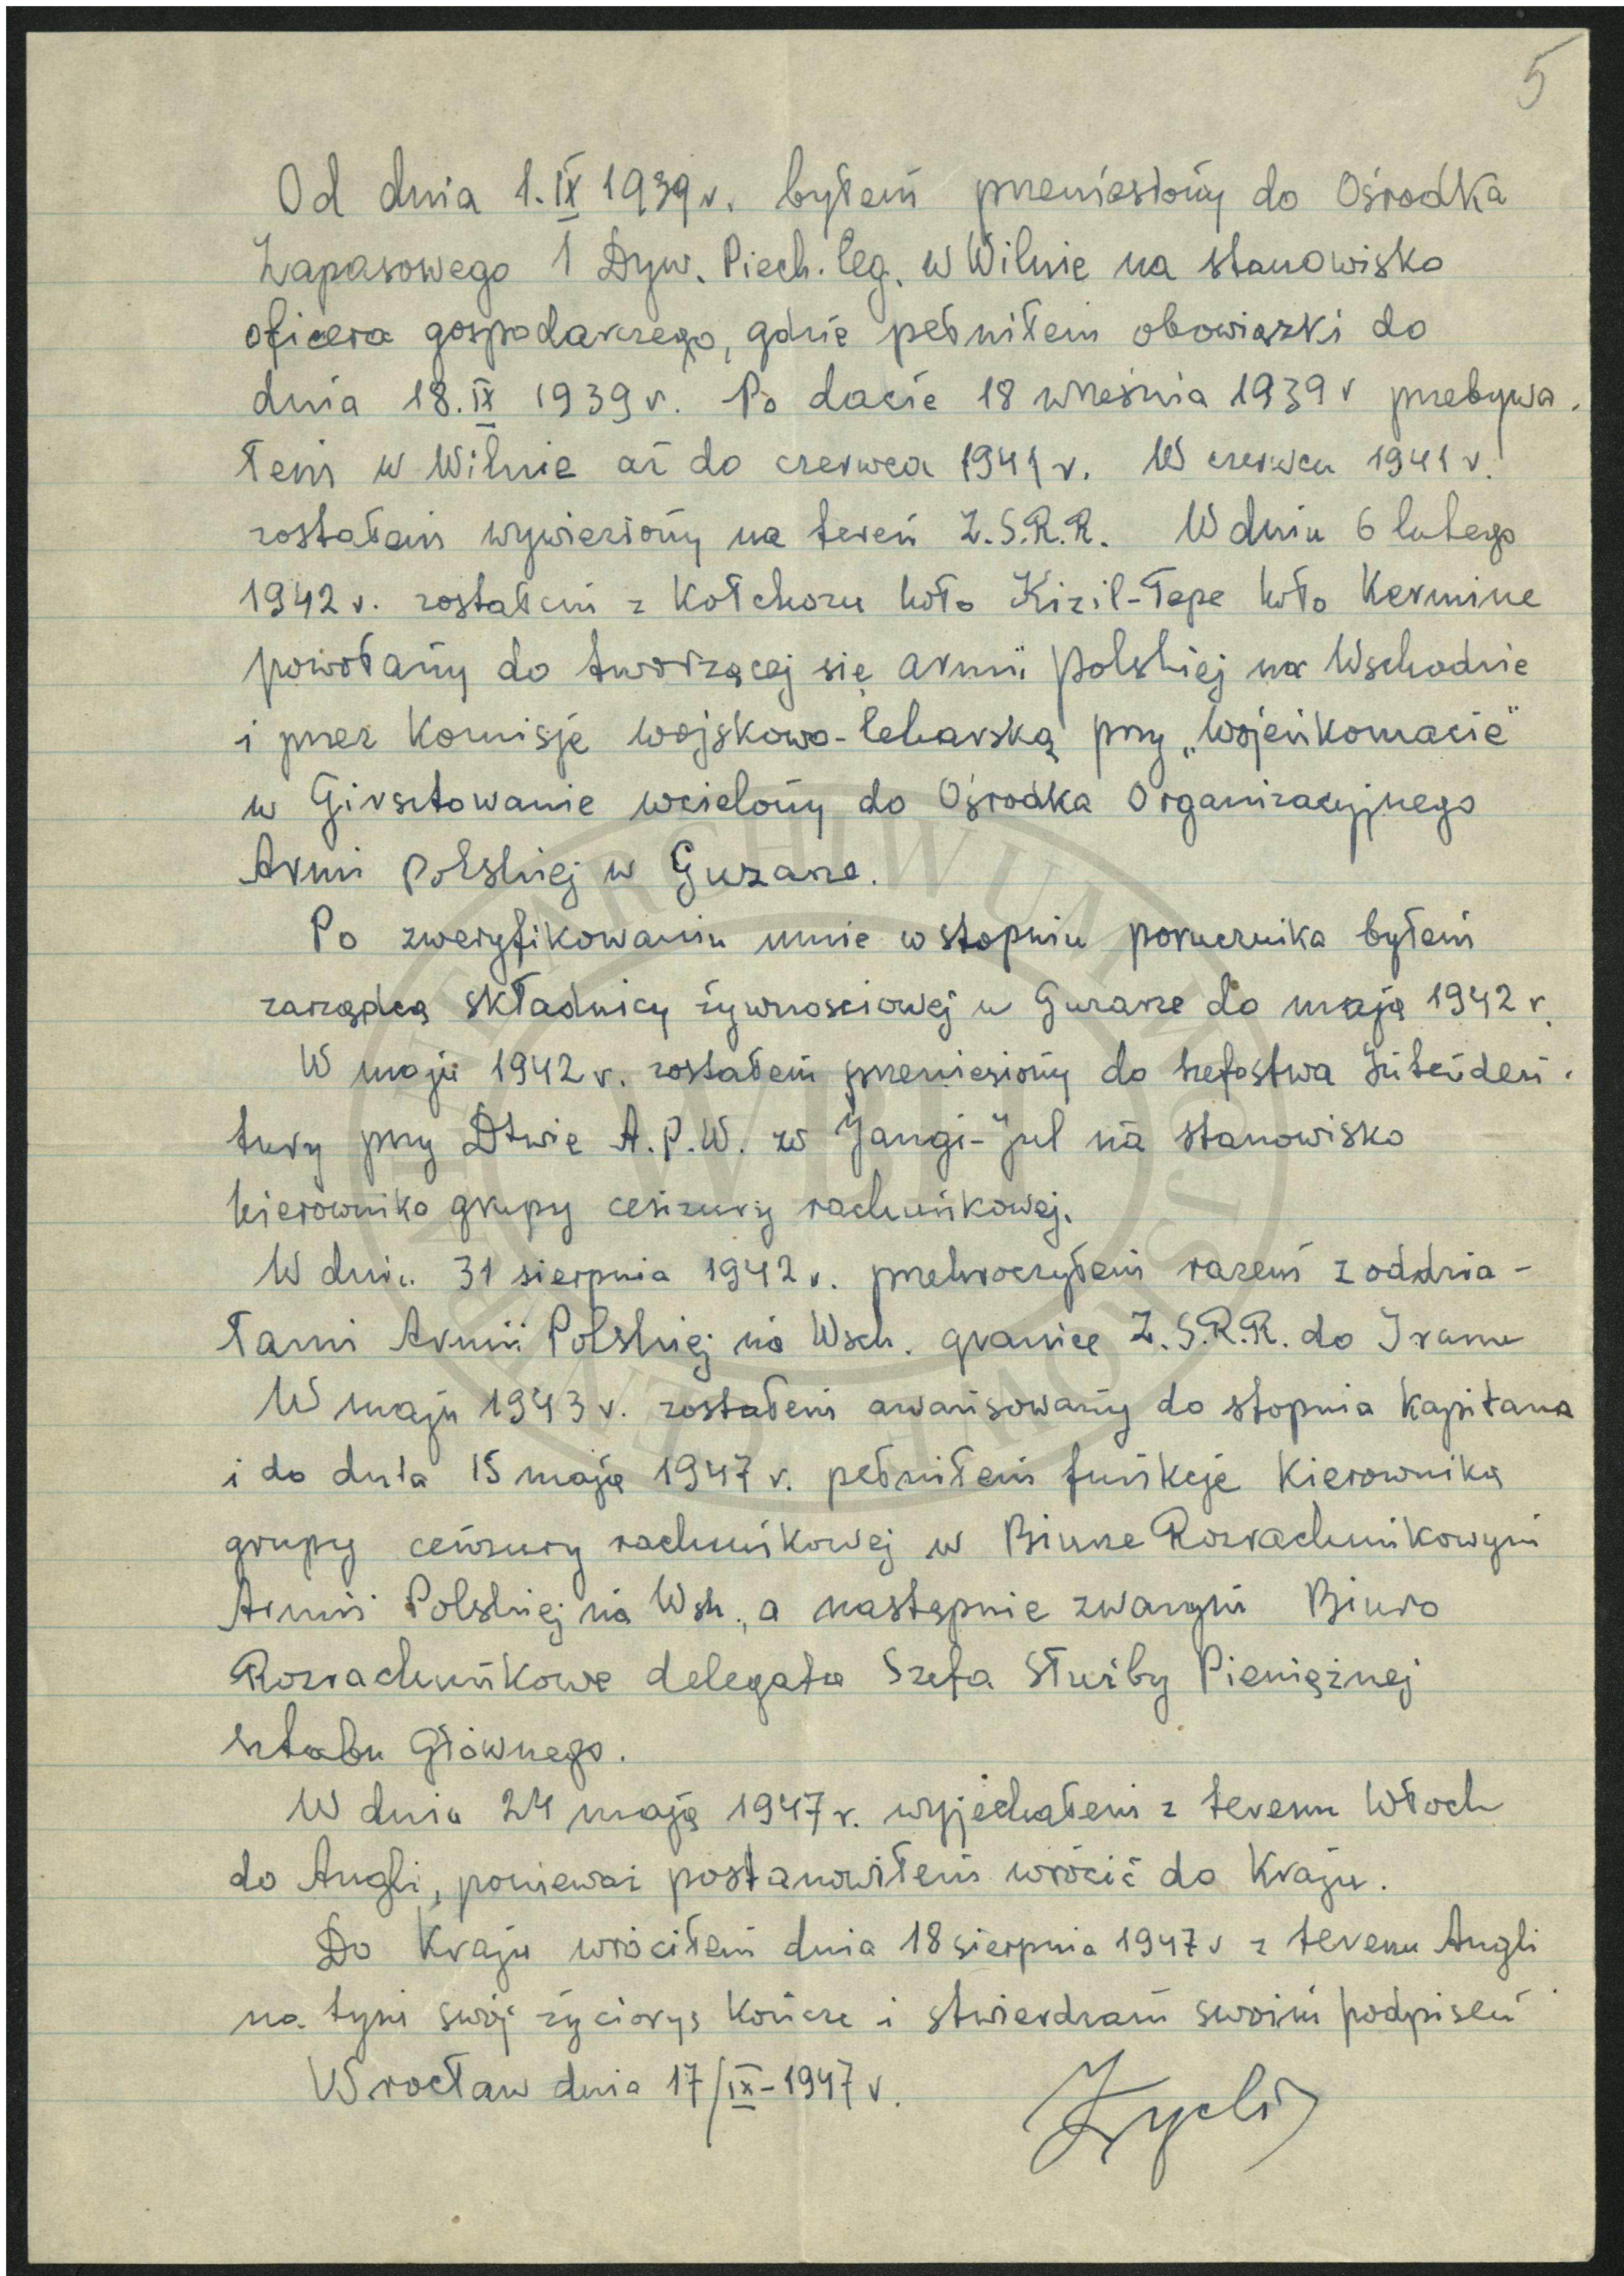 5
Od dnia 1.IX 1939 r. byłem przeniesiony do Ośrodka
Zapasowego 1 Dyw. Piech. Leg. w Wilnie na stanowisko
oficera gospodarczego, gdzie pełniłem obowiązki do
dnia 18.IX 1939 r. Po dacie 18 września 1939 r przebywa-
łem w Wilnie aż do czerwca 1941 r. W czerwcu 1941 r.
zostałem wywieziony na teren Z.S.R.R. W dniu 6 lutego
1942 r. zostałem z Kołchozu koło Kizil-Tepe koło Kermine
powołany do tworzącej się armii polskiej na Wschodzie
i przez Komisję wojskowo-lekarską przy „Wojenkomacie"
w Girsztowanie wcielony do Ośrodka Organizacyjnego
Armi Polskiej w Guzarze.
Po zweryfikowaniu mnie w stopniu porucznika byłem
zarządcą składnicy żywnosciowej w Guzarze do maja 1942 r.
W maju 1942 r. zostałem przeniesiony do szefostwa Intenden-
tury przy Dtwie A.P.W. w Jangi-Jul na stanowisko
kierownika grupy cenzury rachunkowej.
W dniu 31 sierpnia 1942 r. przekroczyłem razem z oddzia-
łami Armii Polskiej na Wsch. granice Z.S.R.R. do Iranu
W maju 1943 r. zostałem awansowany do stopnia kapitana
i do dnia 15 maja 1947 r. pełniłem funkcję Kierownika
grupy cenzury rachunkowej w Biurze Rozrachunkowym
Armii Polskiej na Wsh., a następnie zwanym Biuro
Rozrachunkowe delegata Szefa Służby Pieniężnej
sztabu Głównego.
W dniu 24 maja 1947 r. wyjechałem z terenu Włoch
do Angli, ponieważ postanowiłem wrócić do Kraju.
Do Kraju wróciłem dnia 18 sierpnia 1947 r z terenu Angli
na tym swój życiorys kończe i stwierdzam swoim podpisem
Wrocław dnia 17/IX-1947 r.